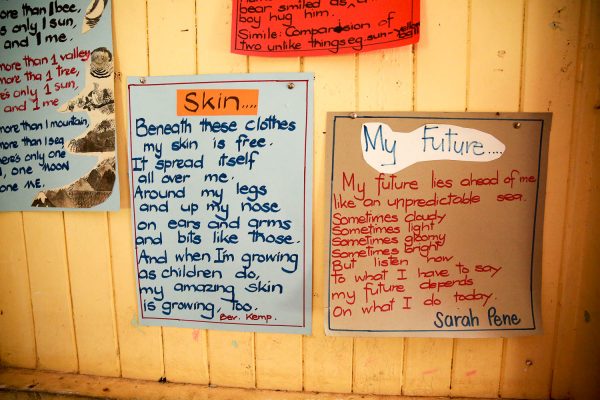 more than 1 bee,
s only 1 sun,
and 1 me.
more than 1 valley
more tha 1 tree,
e's only 1 sun,
and 1 me
more than 1 mountain,
more than 1 sea
here's only one
d, one moon
one me.
bear smiled as a
boy hug him.
Simile: Comparison of
two unlike things eg. sun-yellow
Skin....
Beneath these clothes
my skin is free.
It spread itself
all over me.
Around my legs
and up my nose
on ears and arms
and bits like those.
And when I'm growing
as children do,
my amazing skin
is growing, too.
Bev. Kemp.
My Future....
My future lies ahead of me
like an unpredictable sea.
Sometimes cloudy
Sometimes light
Sometimes gloomy
Sometimes bright
But listen now
to what I have to say
my future depends
on what I do today.
Sarah Pene